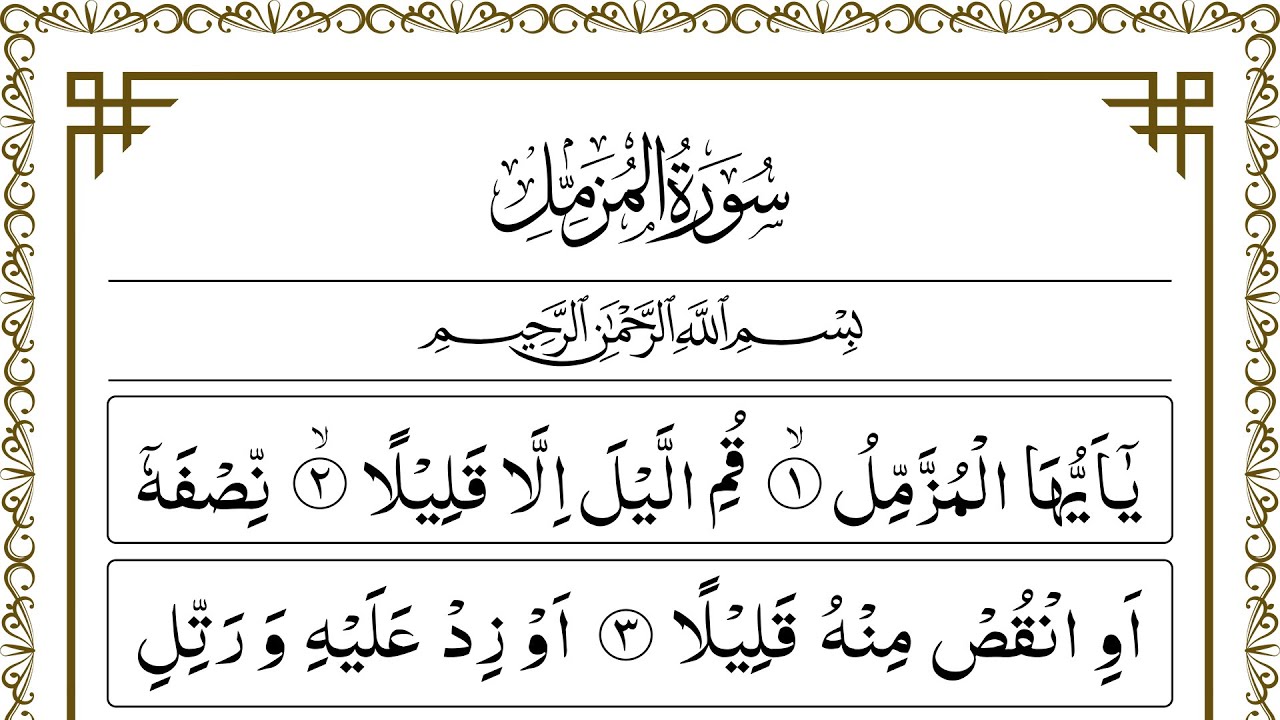 سُورَةُ الْمُزَّمِّلِ
بِسْمِ ٱللَّهِ ٱلرَّحْمَٰنِ ٱلرَّحِيمِ
يٰٓاَيُّهَا الْمُزَّمِّلُ ۙ﴿١﴾ قُمِ الَّيْلَ اِلَّا قَلِيْلًا ۙ﴿٢﴾ نِّصْفَهٗٓ
اَوِ انْقُصْ مِنْهُ قَلِيْلًا ﴿٣﴾ اَوْ زِدْ عَلَيْهِ وَ رَتِّلِ